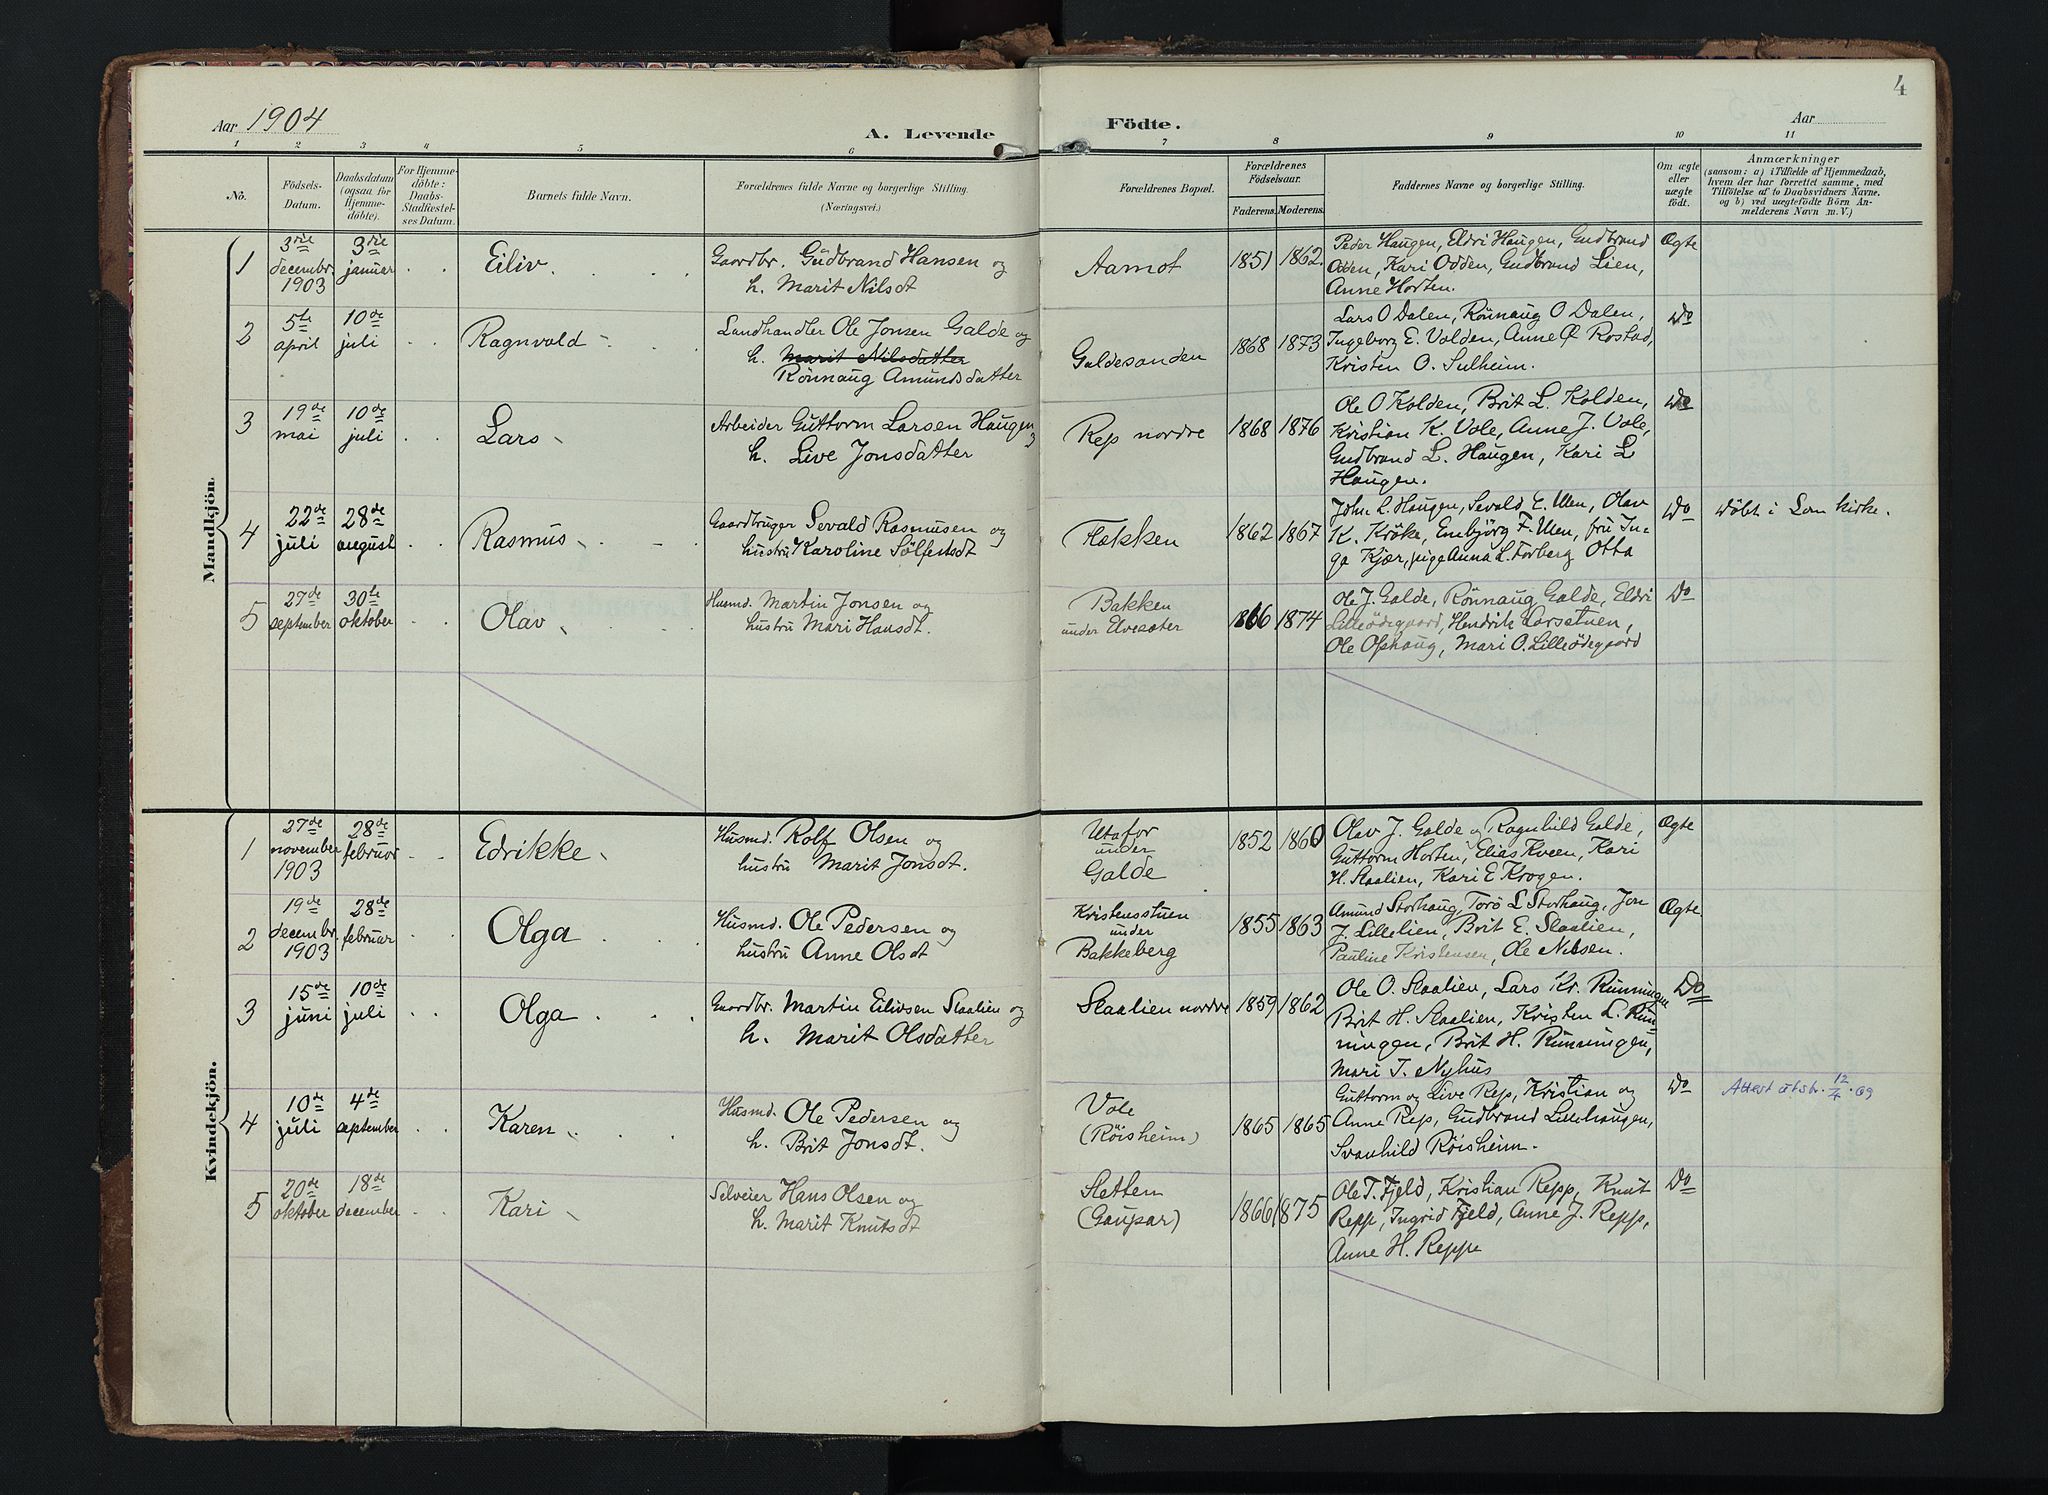 4
Aar 1904
A. Levende
Födte.
Aar
1 2 3 4 5 6 7 8 9 10 11
No.
Födsels-
Datum.
Daabsdatum
(ogsaa for
Hjemme-
döbte).
For Hjemme-
döbte:
Daabs-
Stadfæstel-
ses Datum.
Barnets fulde Navn.
Forældrenes fulde Navne og borgerlige Stilling.
(Næringsvei.)
Forældrenes Bopæl.
Forældrenes
Födselsaar.
Faderens. Moderens.
Faddernes Navne og borgerlige Stilling.
Om ægte
eller
uægte
födt.
Anmærkninger
(saasom: a) i Tilfælde af Hjemmedaab,
hvem der har forrettet samme, med
Tilföielse af to Daabsvidners Navne.
og b) ved uægtefödte Börn An-
melderens Navn m. V.)
Mandkjön.
1
3die
decembr.
1903
3die
januar
Eiliv
Gaardbr. Gudbrand Hansen og
h. Marit Nilsdt
Aamot
1851 1862.
Peder Haugen, Eldri Haugen, Gudbrand
Odden, Kari Odden, Gudbrand Lien,
Anne Horten.
Ægte
2
5te
april
10de
juli
Ragnvald
Landhandler Ole Jonsen Galde og
h. Marit Nilsdatter
Rönnaug Amundsdatter
Galdesanden
1868 1873
Lars O Dalen, Rönnaug O Dalen,
Ingeborg E. Volden, Anne Ø Rostad,
Kristen O. Sulheim.
Do
3
19de
mai
10de
juli
Lars
Arbeider Guttorm Larsen Haugen
h. Live Jonsdatter
Rep nordre
1868 1876
Ole O Kolden, Brit L. Kolden,
Kristian K. Vole, Anne J. Vole,
Gudbrand L. Haugen, Kari L
Haugen.
Do
4
22de
juli
28de
august
Rasmus
Gaardbruger Sevald Rasmusen og
hustru Karoline Sölfestsdt
Flækken
1862 1867
John L. Haugen, Sevald E. Ulen, Olav
K. Kröke, Embjörg F. Ulen, fru In-
ga Kjær, pige Anna L. Forberg Otta
Do
Döbt i Lom kirke.
5
27de
september
30te
oktober
Olav
Husmd. Martin Jonsen og
hustru Mari Hansdt.
Bakken
under Elvesæter
1866 1874
Ole J. Galde, Rönnaug Galde, Eldri
Lilleödegaard, Hendrik Larsstuen,
Ole Ofshaug, Mari O. Lilleödegaard
Do
Kvindekjön.
1
27de
november
1903
28de
februar
Edrikke
Husmd. Rolf Olsen og
hustru Marit Jonsdt.
Utafor
under
Galde
1852 1860
Olav J. Galde og Ragnhild Galde,
Guttorm Horten, Elias Kveen, Kari
H. Slaalien, Kari E Krogen.
Ægte
2
19de
decembr.
1903
28de
februar
Olga
Husmd. Ole Pedersen og
hustru Anne Olsdt
Kristensstuen
under
Bakkeberg
1855 1863
Amund Storhaug, Torö L Storhaug, Jon
J. Lillelien, Brit E. Slaalien,
Pauline Kristensen, Ole Nilsen.
Ægte
3
15de
juni
10de
juli
Olga
Gaardbr. Martin Eilivsen Slaalien og
h. Marit Olsdatter
Slaalien nordre
1859 1862
Ole O. Slaalien, Lars Kr. Runningen
Brit H. Slaalien, Kristen L. Run-
ningen, Brit H. Runningen,
Mari T. Nyhus
Do
4
10de
juli
4de
september
Karen
Husmd. Ole Pedersen og
h. Brit Jonsdt.
Vole
(Röisheim)
1865 1865
Guttorm og Live Rep, Kristian og
Anne Rep, Gudbrand Lillehaugen,
Svanhild Röisheim.
Do
Attest utst. 12/4.09
5
20de
oktober
18de
december
Kari
Selveier Hans Olsen og
h. Marit Knutsdt
Sletten
(Gaupar)
1866 1875
Ole T. Fjeld, Kristian Repp, Knut
Repp, Ingrid Fjeld, Anne J. Repp,
Anne H. Reppe
Do